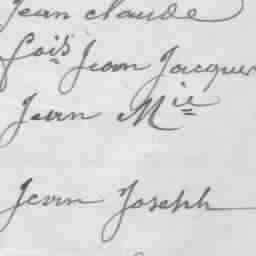 Jean claude
fois Jean Jacques
Jean Mie
Jean Joseph